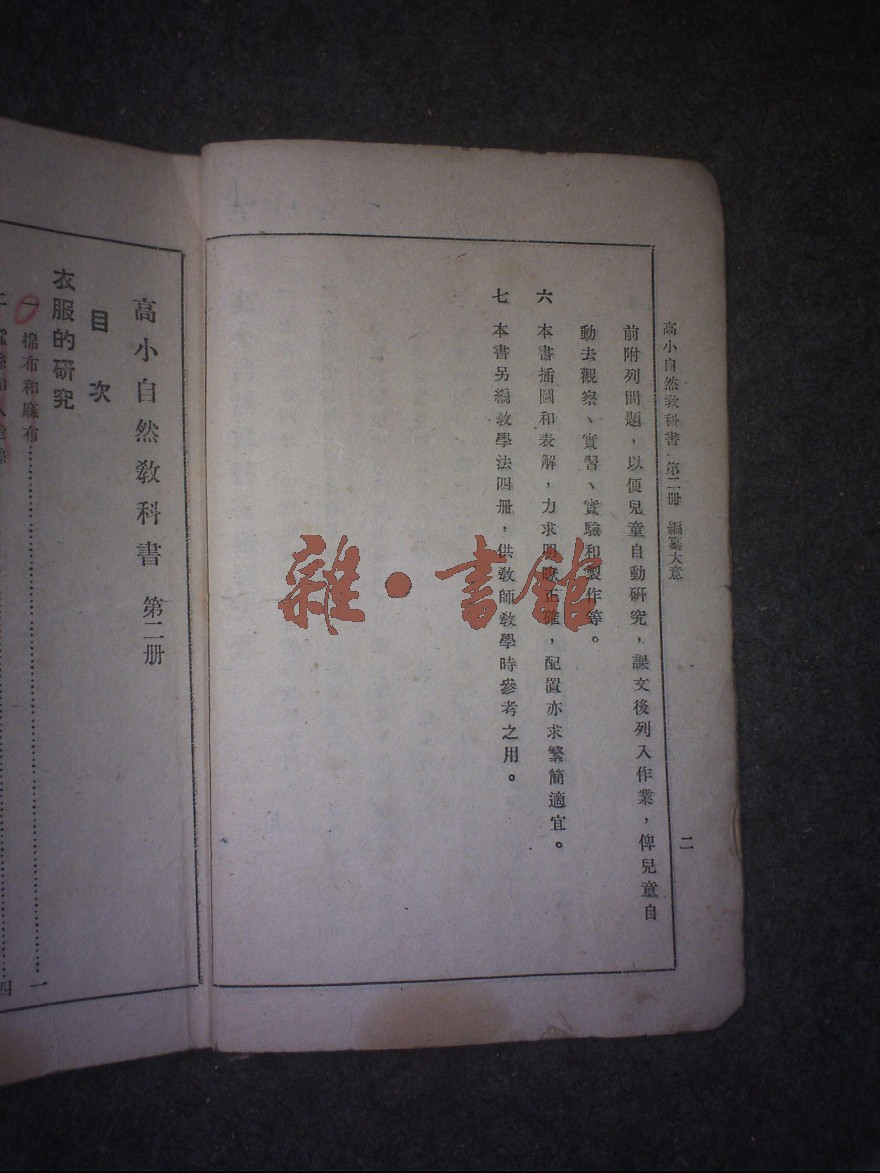 高小自然教科書 第二冊 編纂大意
二
前附列問題，以便兒童自動研究，課文後列入作業，俾兒童自
動去觀察、實習、實驗和製作等。
六 本書插圖和表解，力求明晰正確，配置亦求繁簡適宜。
七 本書另編教學法四冊，供教師教學時參考之用。
雜·書館
高小自然教科書 第二册
目次
衣服的研究
一 棉布和麻布……一
二
四